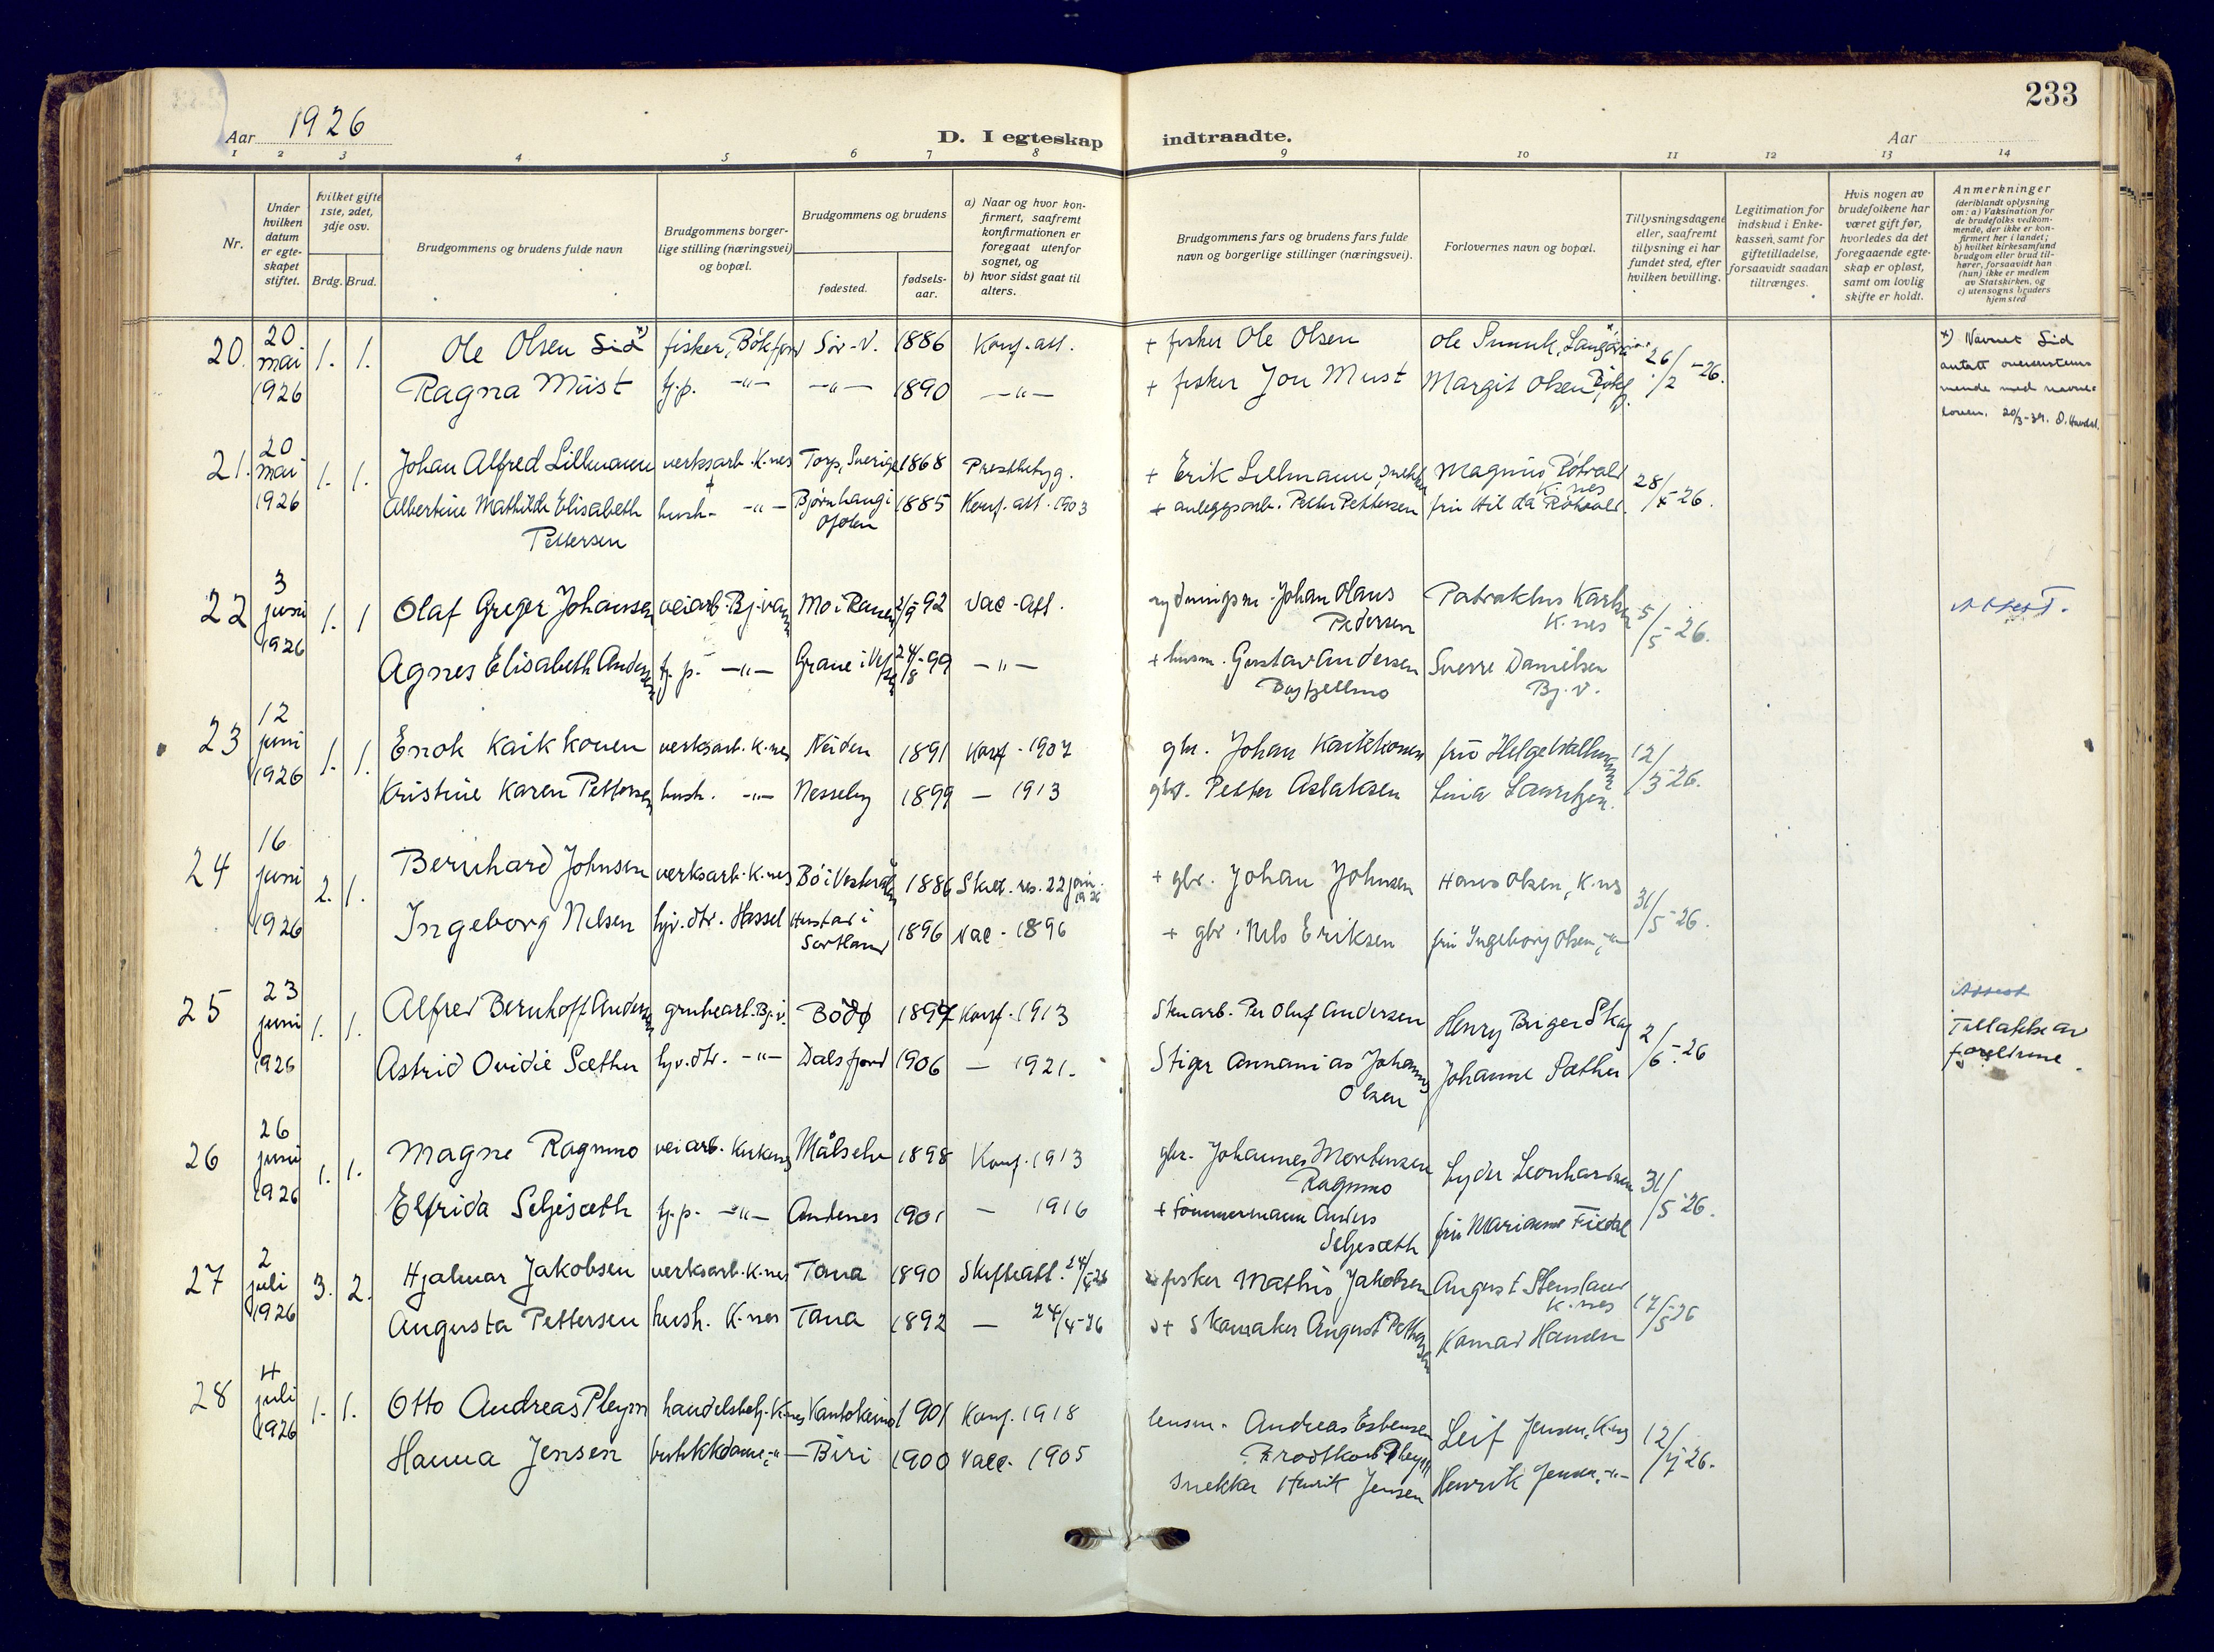 233
Aar 1926
D. I egteskap indtraadte.
Aar
1 2 3 4 5 6 7 8 9 10 11 12 13 14
Nr.
Under hvilken datum er egteskapet stiftet.
hvilket gifte 1ste, 2det, 3dje osv.
Brdg. Brud.
Brudgommens og brudens fulde navn
Brudgommens borgerlige stilling (næringsvei) og bopæl.
Brudgommens og brudens
fødested.
fødselsaar.
a) Naar og hvor konfirmert, saafremt konfirmationen er foregaat utenfor sognet, og
b) hvor sidst gaat til alters.
Brudgommens fars og brudens fars fulde navn og borgerlige stillinger (næringsvei).
Forlovernes navn og bopæl.
Tillysningsdagene eller, saafremt tillysning ei har fundet sted, efter hvilken bevilling.
Legitimation for indskud i Enkekassen, samt for giftetilladelse, forsaavidt saadan tiltrænges.
Hvis nogen av brudefolkene har været gift før, hvorledes da det foregaaende egteskap er opløst, samt om lovlig skifte er holdt.
Anmerkninger
(deriblandt oplysning om: a) Vaksination for de brudefolks vedkommende, der ikke er konfirmert her i landet; b) hvilket kirkesamfund brudgom eller brud tilhører, forsaavidt han (hun) ikke er medlem av Statskirken, og c) utensogns bruders hjemsted
20. 20 mai 1926 1. 1. Ole Olsen Sid x) fisker, Bökfjord Sör-V. 1886 Konf. att. + fisker Ole Olsen Ole 26/2-26.
Ragna Must hj.p. -"- -"- 1890 -"- + fisker Jon Must Margit Olsen
x) Navnet Sid antatt overensstemmende med navneloven. 20/3-34.
21. 20 mai 1926 1. 1. Johan Alfred Lillmann verksarb. K.nes Torp, Sverige 1868 Prestbetyg. + Erik Lillmann, snekker Magnus Rötvold K.nes 28/4-26.
Albertine Mathilde Elisabeth Pettersen hush. -"- Bjørnhaug i Ofoten 1885 Konf. att. 1903 + anleggsarb. Petter Pettersen fru Hilda Rötvold.
22 3 juni 1926 1. 1 Olaf Greger Johansen veiarb. Bj.vann Mo i Ranen 2/9-92 Vac-att. rydningsm. Johan Olaus Pedersen Patroklus Karlsen K.nes 5/5-26. Attest.
Agnes Elisabeth Andersen hj.p. -"- Grane i Vefsn 24/8-99 -"- + husm. Gustav Andersen Sverre Danielsen Bj.V.
23 12 juni 1926 1. 1. Enok Kaikkonen verksarb. K.nes Neiden 1891 Konf - 1907 gbr. Johan Kaikkonen fru Helge 12/3-26.
Kristine Karen Pettersen hush. -"- Nesseby 1899 - 1913 gbr. Petter Aslaksen Lina Lauritzen.
24 16 juni 1926 2. 1. Bernhard Johnsen verksarb. K.nes Bö i Vesterålen 1886 Skil. res. 22 juni 1926 + gbr. Johan Johnsen Hans Olsen, K.nes 31/5-26.
Ingeborg Nilsen hjv.dtr. Hassel i Sortland 1896 Vac - 1896 + gbr. Nils Eriksen fru Ingeborg Olsen, -"-
25 23 juni 1926 1. 1. Alfred Bernhoff Andersen grubearb. Bj.v. Bodø 1897 Konf. 1913 Stenarb. Per Oluf Andersen Henry Birger Skog 2/6-26 Attest
Astrid Ovidie Sæther hjv.dtr. -"- Dalsfjord 1906 - 1921. Stiger Annanias Johannes Olsen Johanne Sæther Tillatelse av foreldrene.
26 26 juni 1926 1. 1. Magne Ragnmo veiarb. Kirkenes Målselv 1898 Konf. 1913 gbr. Johannes Mortensen Ragnmo Lyder Leonhardsen 31/5-26.
Elfrida Seljesæth hj.p. -"- Andenes 1901 - 1916 + tømmermann Anders Seljesæth fru Marianne
27 2 juli 1926 3. 2. Hjalmar Jakobsen verksarb. K.nes Tana 1890 Skifteatt. 24/4-26 fisker Mathis Jakobsen August Stensland K.nes 17/5-26
Augusta Pettersen hush. K.nes Tana 1892 - 24/4-26 + Skomaker August Pettersen Konrad Hansen
28 4 juli 1926 1. 1. Otto Andreas Pleym handelsbetj. K.nes Kautokeino 1901 Konf. 1918 lensm. Andreas Esbensen Brodtkorb Pleym Leif Jensen, K.nes 12/7-26.
Hanna Jensen butikkdame, -"- Biri 1900 Vacc. 1905 snekker Henrik Jensen Henrik Jensen, -"-